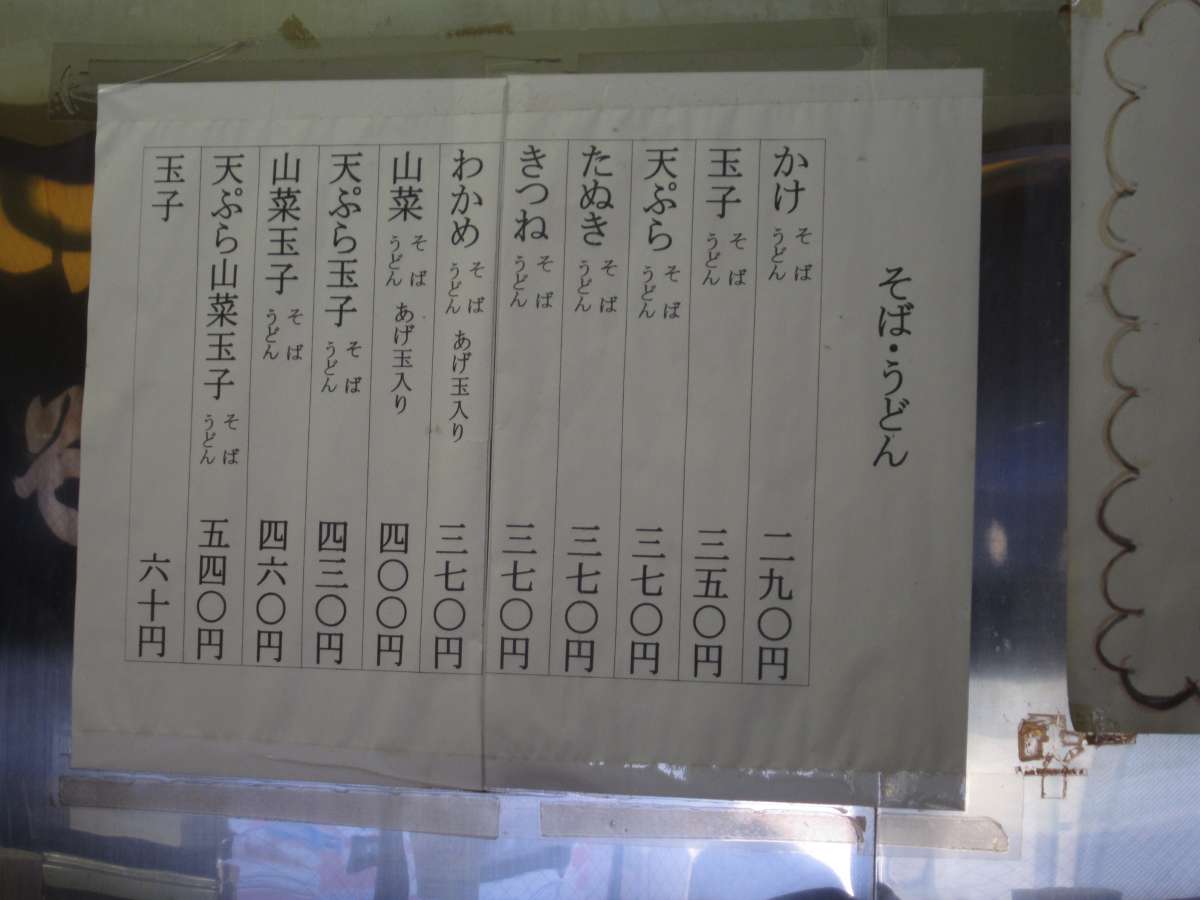 そば・うどん
かけ そば うどん 二九〇円
玉子 そば うどん 三五〇円
天ぷら そば うどん 三七〇円
たぬき そば うどん 三七〇円
きつね そば うどん 三七〇円
わかめ そば うどん あげ玉入り 三七〇円
山菜 そば うどん あげ玉入り 四〇〇円
天ぷら玉子 そば うどん 四三〇円
山菜玉子 そば うどん 四六〇円
天ぷら山菜玉子 そば うどん 五四〇円
玉子 六十円